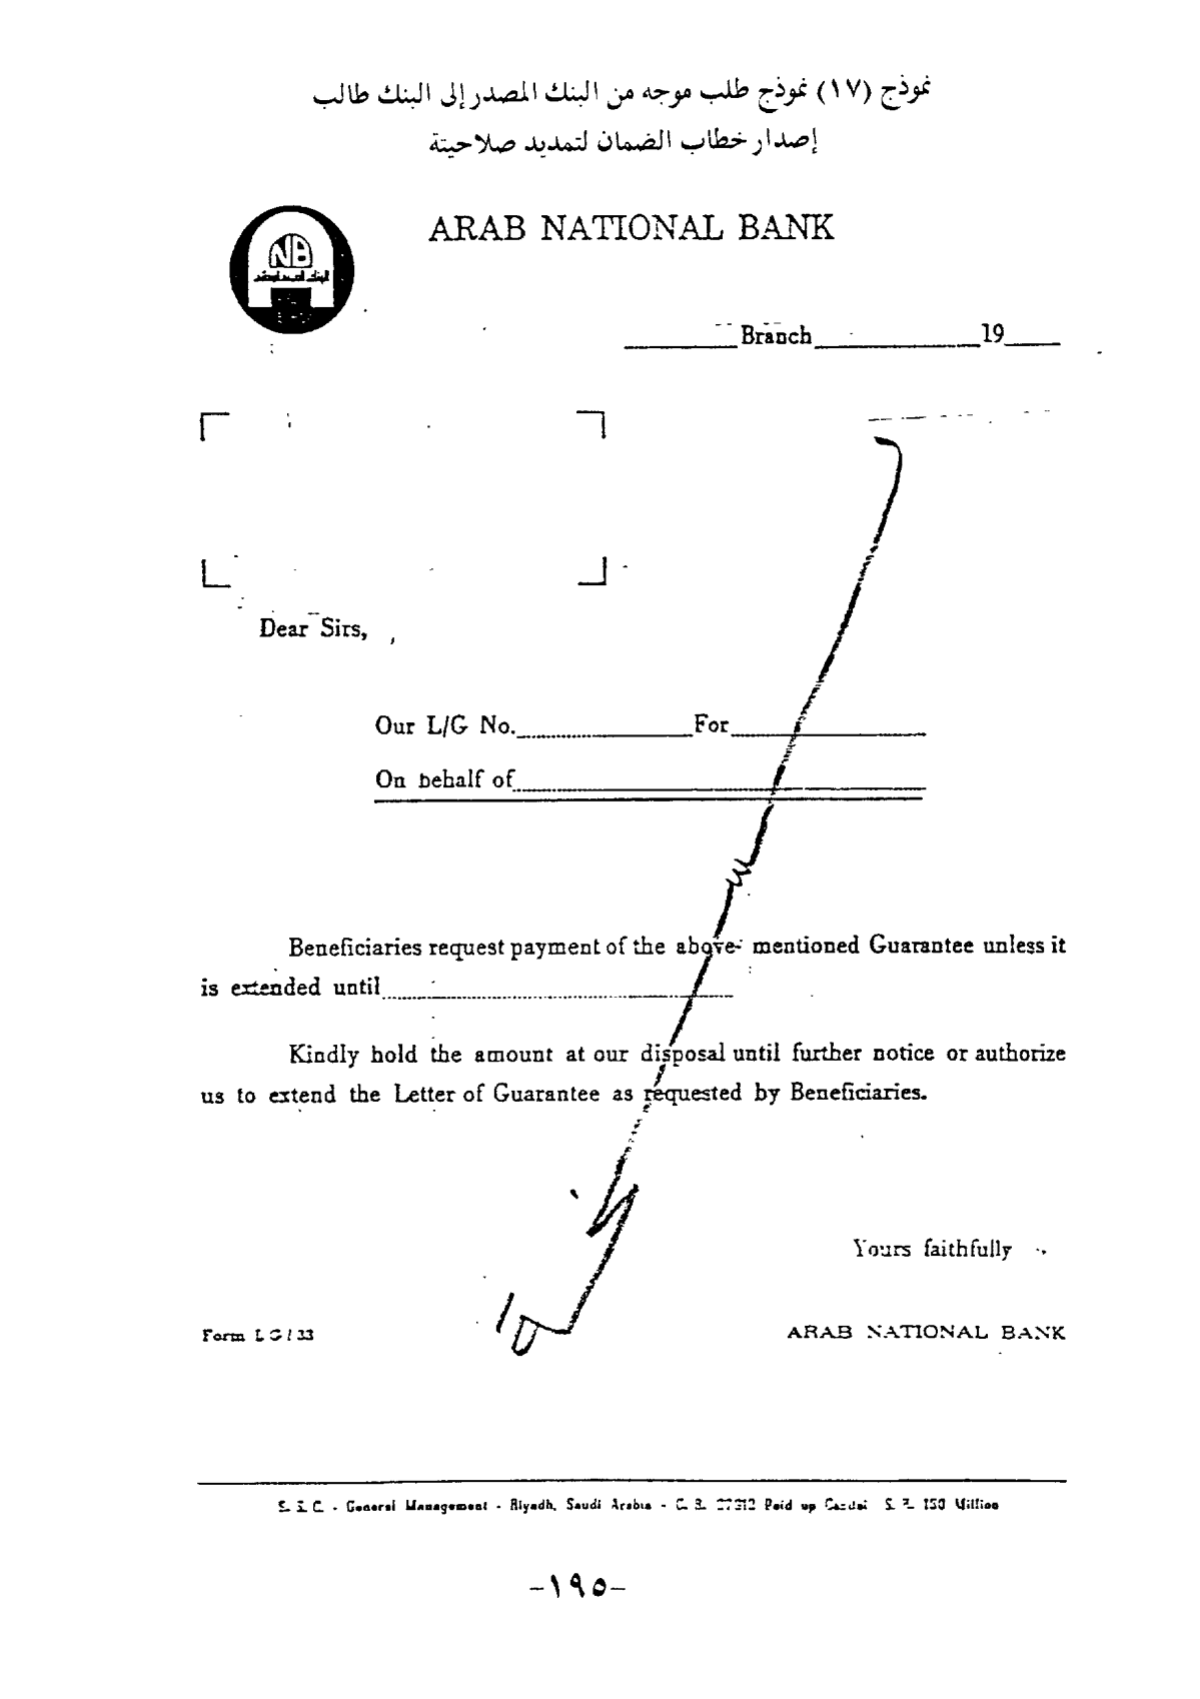 نموذج (١٧) نموذج طلب موجه من البنك المصدر إلى البنك طالب
إصدار خطاب الضمان لتمديد صلاحيتة
ARAB NATIONAL BANK
NB
Branch 19
Dear Sirs,
Our L/G No. For
On behalf of
Beneficiaries request payment of the above- mentioned Guarantee unless it
is extended until
Kindly hold the amount at our disposal until further notice or authorize
us to extend the Letter of Guarantee as requested by Beneficiaries.
Yours faithfully
Form L G / 33
ARAB NATIONAL BANK
General Management - Riyadh, Saudi Arabia - Paid up 150 Million
-١٩٥-